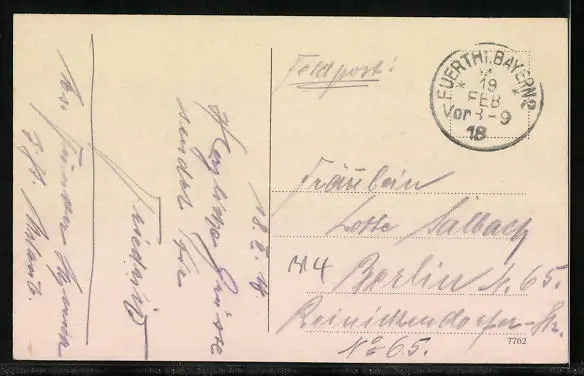 Feldpost!
FUERTH i. BAYERN 2
19
FEB
Vor 8-9
18
Fräulein
Lotte Salbach
M4
Berlin N. 65.
Reinickendorfer-Str.
No 65.
7762
18.2.18
Herzliche Grüsse
sendet Ihr
Friedrich